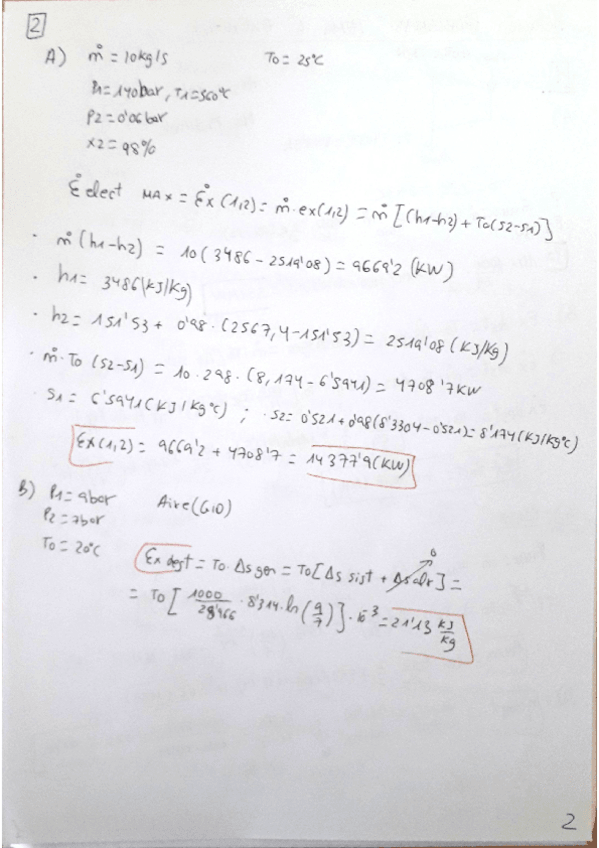 2
A) ṁ = 10kg/s T0 = 25ºC
P1=140bar, T1=560ºC
P2=0'06bar
x2=98%
Ėelect MAX = Ėx(1,2)= ṁ·ex(1,2) = ṁ[(h1-h2)+T0(s2-s1)]
· ṁ(h1-h2) = 10(3486-2519'08)=9669'2 (KW)
· h1= 3486(kJ/Kg)
· h2= 151'53+ 0'98·(2567,4-151'53)= 2519'08(kJ/kg)
· ṁ·T0 (s2-s1) = 10·298·(8,174-6'5941)=4708'7KW
· s1= 6'5941(KJ/kgºC) ; ·s2= 0'521+0'98(8'3304-0'521)=8'174(KJ/kgºC)
Ex(1,2)= 9669'2 + 4708'7 = 14377'9(KW)
B) P1=9bar Aire(GID)
P2=7bar
T0=20ºC
0
Ex dest = T0·Δsgen = T0[Δs sist + Δsalr]=
= T0[1000/28'966 ·8'314·ln(9/7)]·10⁻³=21'13 kJ/kg
2